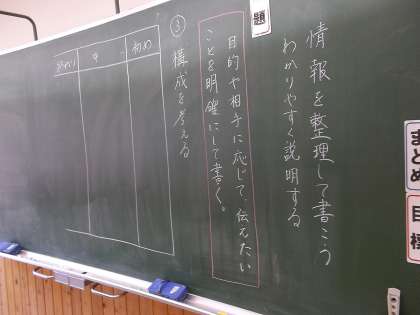 情報を整理して書こう
わかりやすく説明する
題
目的や相手に応じて、伝えたい
ことを明確にして書く。
③ 構成を考える
初め
中
終わり
まとめ
目標